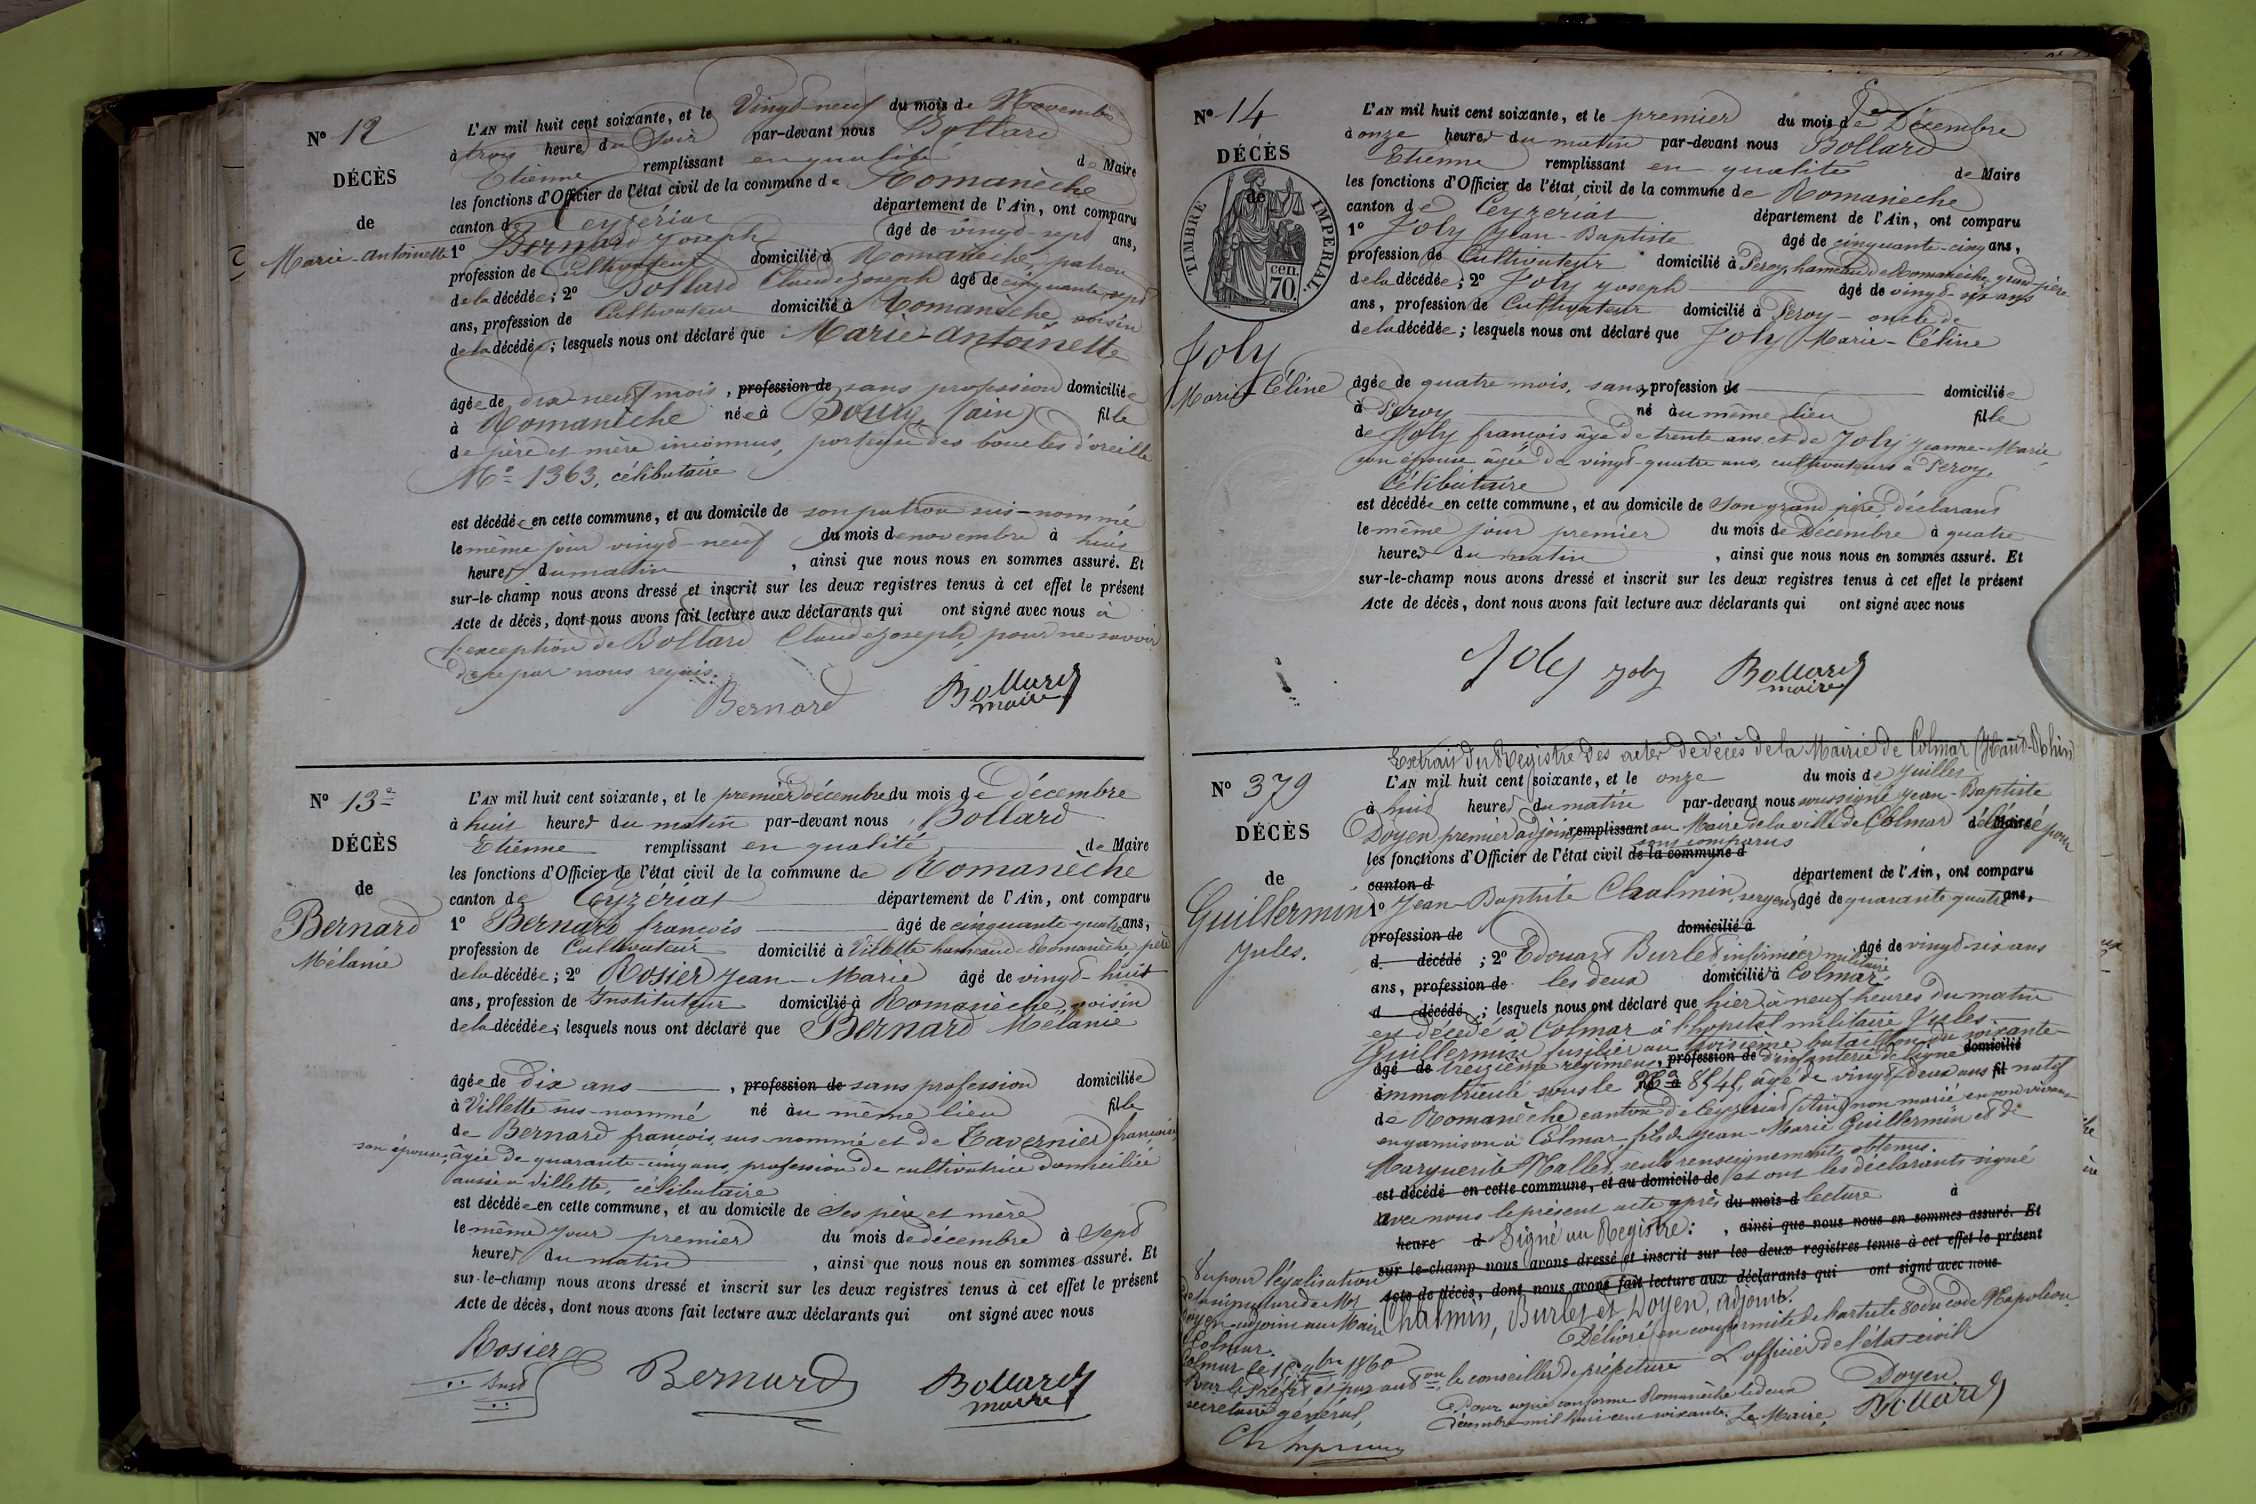 Nº 12
DÉCÈS
de
Marie-Antoinette
L'AN mil huit cent soixante, et le Vingt-neuf du mois de Novembre
à trois heures du Soir par-devant nous Bollard
Etienne remplissant en qualité de Maire
les fonctions d'Officier de l'état civil de la commune de Romanèche
canton de Ceyzériat département de l'Ain, ont comparu
1º Bernard Joseph âgé de vingt-sept ans,
profession de Cultivateur domicilié à Romanèche patron
de la décédée; 2º Bollard Claude Joseph âgé de cinquante sept
ans, profession de Cultivateur domicilié à Romanèche, voisin
de la décédée; lesquels nous ont déclaré que Marie-Antoinette
âgée de dix-neuf mois, profession de sans profession domiciliée
à Romanèche née à Bourg (ain) fille
de père et mère inconnus, porteuse des boucles d'oreille
Nº 1363, célibataire
est décédée en cette commune, et au domicile de son patron sus-nommé
le même jour vingt-neuf du mois de novembre à huit
heures du matin, ainsi que nous nous en sommes assuré. Et
sur-le-champ nous avons dressé et inscrit sur les deux registres tenus à cet effet le présent
Acte de décès, dont nous avons fait lecture aux déclarants qui ont signé avec nous à
l'exception de Bollard Claude Joseph, pour ne savoir
de ce par nous requis.
Bernard Bollard
maire
Nº 13
DÉCÈS
de
Bernard
Mélanie
L'AN mil huit cent soixante, et le premier décembre du mois de décembre
à huit heures du matin par-devant nous Bollard
Etienne remplissant en qualité de Maire
les fonctions d'Officier de l'état civil de la commune de Romanèche
canton de Ceyzériat département de l'Ain, ont comparu
1º Bernard françois âgé de cinquante quatre ans,
profession de Cultivateur domicilié à Villette hameau de Romanèche, père
de la décédée; 2º Rosier Jean-Marie âgé de vingt-huit
ans, profession de Instituteur domicilié à Romanèche, voisin
de la décédée; lesquels nous ont déclaré que Bernard Mélanie
âgée de dix ans, profession de sans profession domiciliée
à Villette sus-nommé né au même lieu fille
de Bernard françois, sus-nommé et de Tavernier françoise
son épouse, âgée de quarante-cinq ans, profession de cultivatrice domiciliée
aussi à Villette, célibataire
est décédée en cette commune, et au domicile de ses père et mère
le même jour premier du mois de décembre à sept
heures du matin, ainsi que nous nous en sommes assuré. Et
sur-le-champ nous avons dressé et inscrit sur les deux registres tenus à cet effet le présent
Acte de décès, dont nous avons fait lecture aux déclarants qui ont signé avec nous
Rosier
Inst Bernard Bollard
maire
Nº 14
DÉCÈS
de
TIMBRE IMPERIAL
70 cen.
Joly
Marie-Céline
L'AN mil huit cent soixante, et le premier du mois de Décembre
à onze heures du matin par-devant nous Bollard
Etienne remplissant en qualité de Maire
les fonctions d'Officier de l'état civil de la commune de Romanèche
canton de Ceyzériat département de l'Ain, ont comparu
1º Joly Jean-Baptiste âgé de cinquante-cinq ans,
profession de Cultivateur domicilié à Peroy, hameau de Romanèche, grand-père
de la décédée; 2º Joly Joseph âgé de vingt-six ans
ans, profession de Cultivateur domicilié à Peroy - oncle de
de la décédée; lesquels nous ont déclaré que Joly Marie-Céline
âgée de quatre mois, sans profession de domiciliée
à Peroy né au même lieu fille
de Joly françois âgé de trente ans, et de Joly Jeanne-Marie
son épouse âgée de vingt-quatre ans, cultivateurs à Peroy.
Célibataire
est décédée en cette commune, et au domicile de son grand père déclarant
le même jour premier du mois de Décembre à quatre
heures du matin, ainsi que nous nous en sommes assuré. Et
sur-le-champ nous avons dressé et inscrit sur les deux registres tenus à cet effet le présent
Acte de décès, dont nous avons fait lecture aux déclarants qui ont signé avec nous
Joly Joly Bollard
maire
Extrait du Registre des actes de décès de la Mairie de Colmar (Haut-Rhin)
Nº 379
DÉCÈS
de
Guillermin
Jules.
L'AN mil huit cent soixante, et le onze du mois de Juillet
à huit heures du matin par-devant nous soussigné Jean-Baptiste
Doyen, premier adjoint remplissant au Maire de la ville de Colmar délégué pour
les fonctions d'Officier de l'état civil de la commune d sont comparus
canton d département de l'Ain, ont comparu
1º Jean-Baptiste Chalmin, sergent, âgé de quarante quatre ans,
profession de domicilié à
d décédé; 2º Edouard Burlet infirmier militaire âgé de vingt-six ans
ans, profession de les deux domiciliés à Colmar
d décédé; lesquels nous ont déclaré que hier à neuf heures du matin
est décédé à Colmar à l'hopital militaire Jules
Guillermin fusilier au troisième bataillon du soixante-
âgé de treizième régiment, profession de d'infanterie de ligne domicilié
immatriculé sous le Nº 8545, âgé de vingt-deux ans fil natif
de Romanèche canton de Ceyzeriat (Ain) non marié en son vivant
en garnison à Colmar, fils de Jean-Marie Guillermin et de
Marguerite Mallet, seuls renseignements obtenus.
est décédé en cette commune, et au domicile de et ont les déclarants signé
avec nous le présent acte après du mois d lecture à
heure d Signé au Registre: , ainsi que nous nous en sommes assuré. Et
sur-le-champ nous avons dressé et inscrit sur les deux registres tenus à cet effet le présent
Acte de décès, dont nous avons fait lecture aux déclarants qui ont signé avec nous
Chalmin, Burlet et Doyen, adjoint.
Délivré en conformité de l'article 80 du code Napoléon.
L'officier de l'état-civil
Doyen
Vu pour légalisation
de la signature de Mr
Doyen adjoint au Maire
Colmar.
Colmar le 1860
Pour le Préfet et par le conseiller de préfecture
secrétaire général,
Pour copie conforme Romanèche le deux
décembre mil huit cent soixante. Le Maire, Bollard